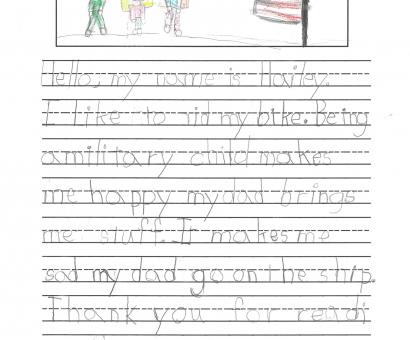 Hello, my name is Hailey.
I like to rin my bike. Being
a military child makes
me happy my dad brings
me stuff. It makes me
sad my dad go on the ship.
Thank you for readi